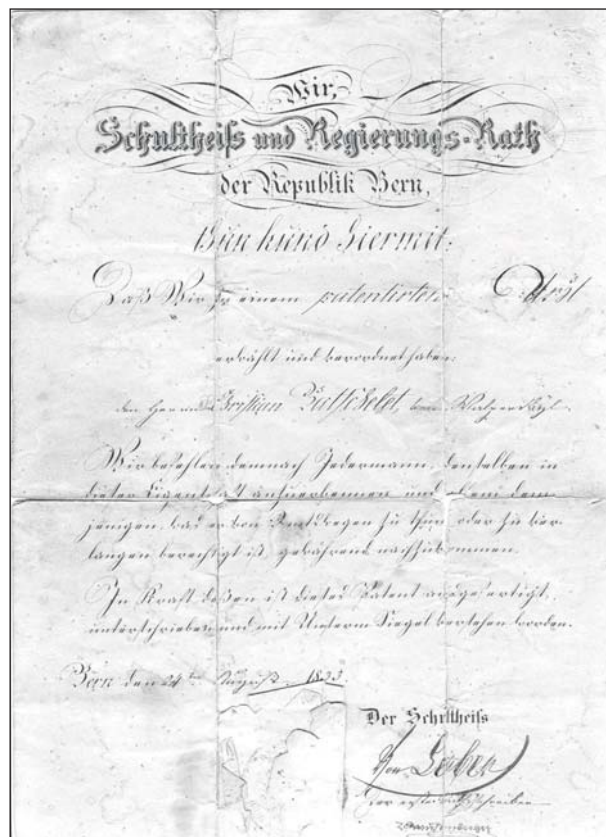 Wir,
Schultheiß und Regierungs-Rath
der Republik Bern,
thun kund hiermit:
Daß Wir zu einem patentirten Arzt
erwählt und verordnet haben
den Herrn Christian
Wir befehlen demnach Jedermann, denselben in
dieser Eigenschaft anzuerkennen und eben dem-
jenigen, was er von Amtswegen zu thun oder zu ver-
langen berechtigt ist, gebührend nachzukommen.
In Kraft deßen ist dieses Patent ausgefertigt,
unterschrieben und mit Unserm Siegel versehen worden.
Bern den 24ten August 1833.
Der Schultheiß
Der erste Rathsschreiber